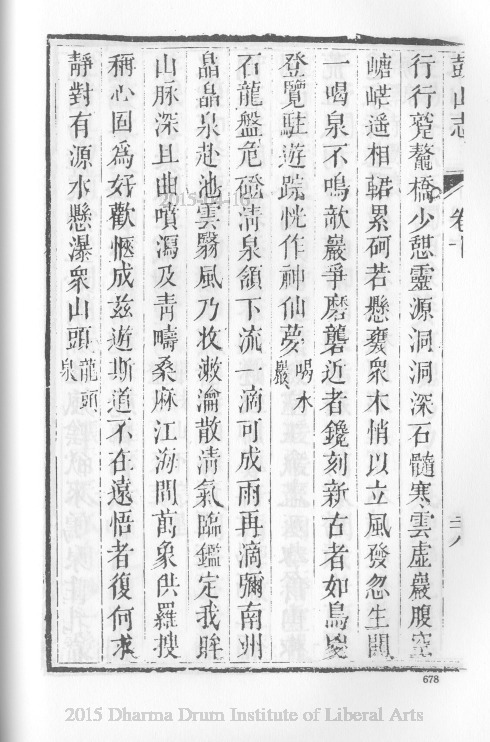 鼓山志
卷十
行行蹔鼇橋少憩靈源洞洞深石髓寒雲虛巖腹空
嵣㟐遙相轕累砢若懸甕衆木悄以立風發忽生鬨
一喝泉不鳴敧巖爭磨礱近者鑱刻新古者如鳥
登覽駐遊踪恍作神仙夢喝水巖
石龍盤危磴清泉頷下流一滴可成雨再滴彌南州
晶晶泉赴池雲翳風乃收漱瀹散清氣臨鑑定我眸
山脉深且曲噴瀉及靑疇桑麻江海間萬象供羅搜
稱心固爲好歡愜成茲遊斯道不在遠悟者復何求
靜對有源水懸瀑衆山頭龍頭泉
678
2015-04-16
2015 Dharma Drum Institute of Liberal Arts